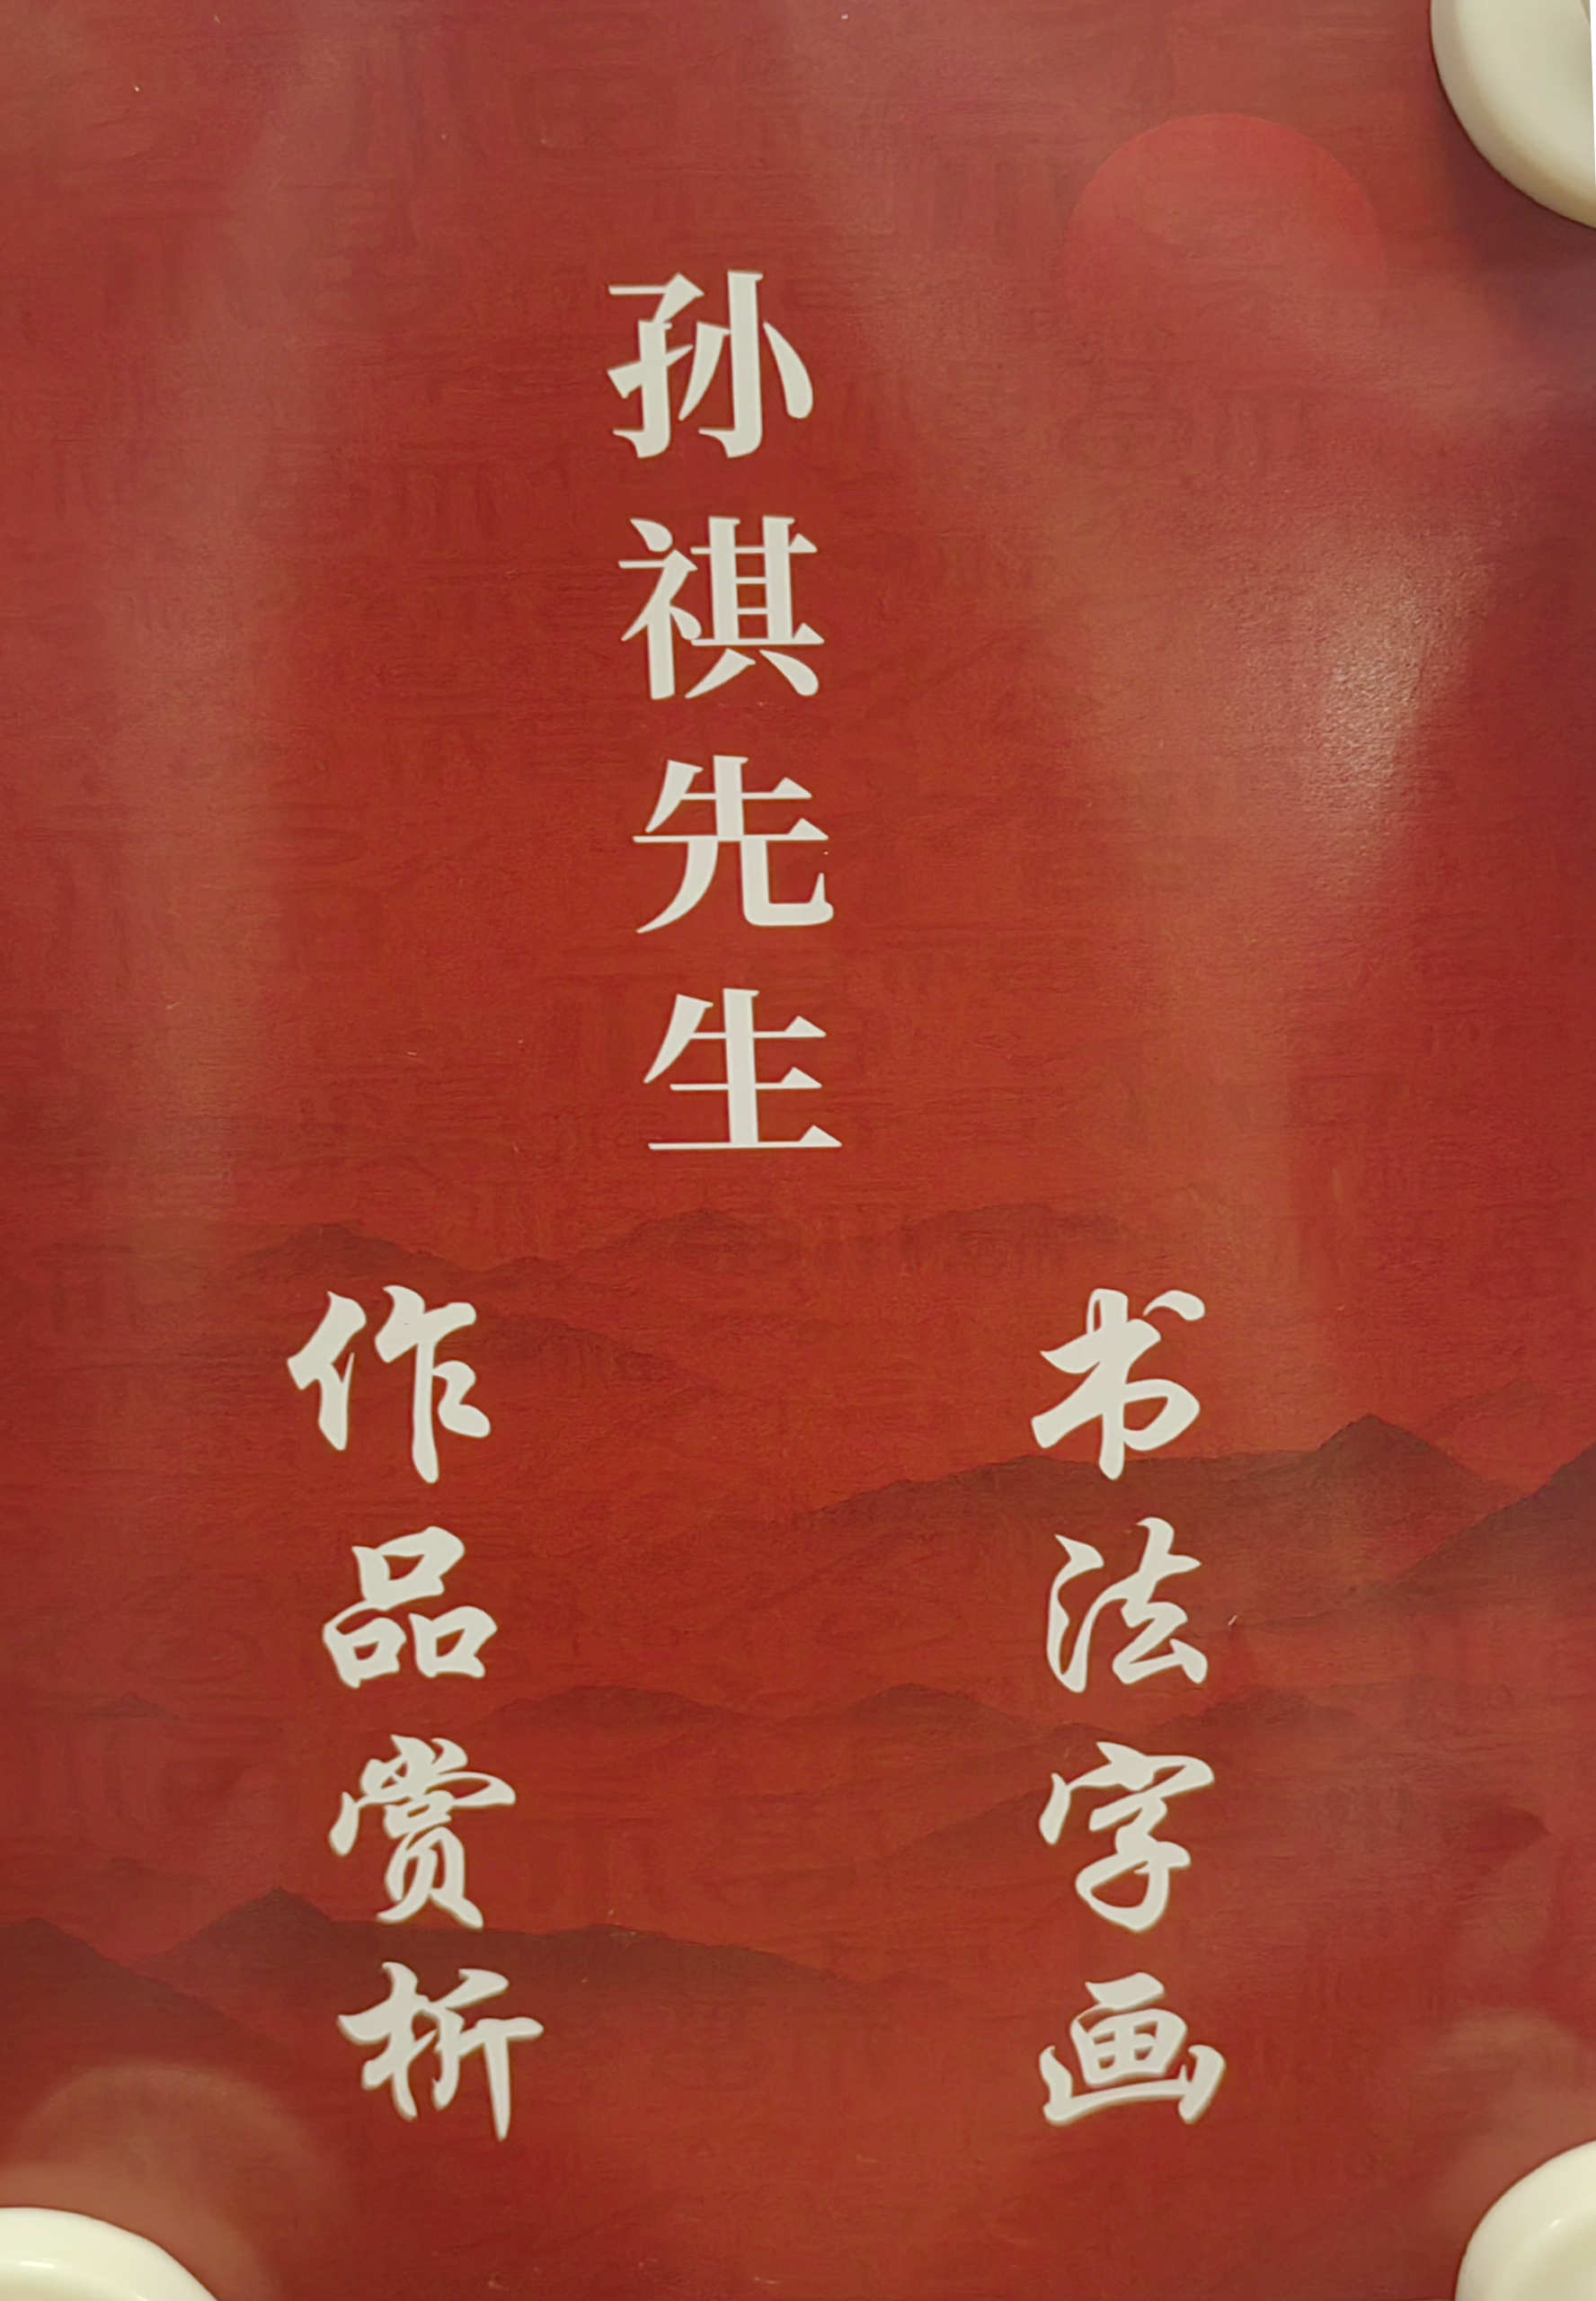 孙祺先生
书法字画
作品赏析